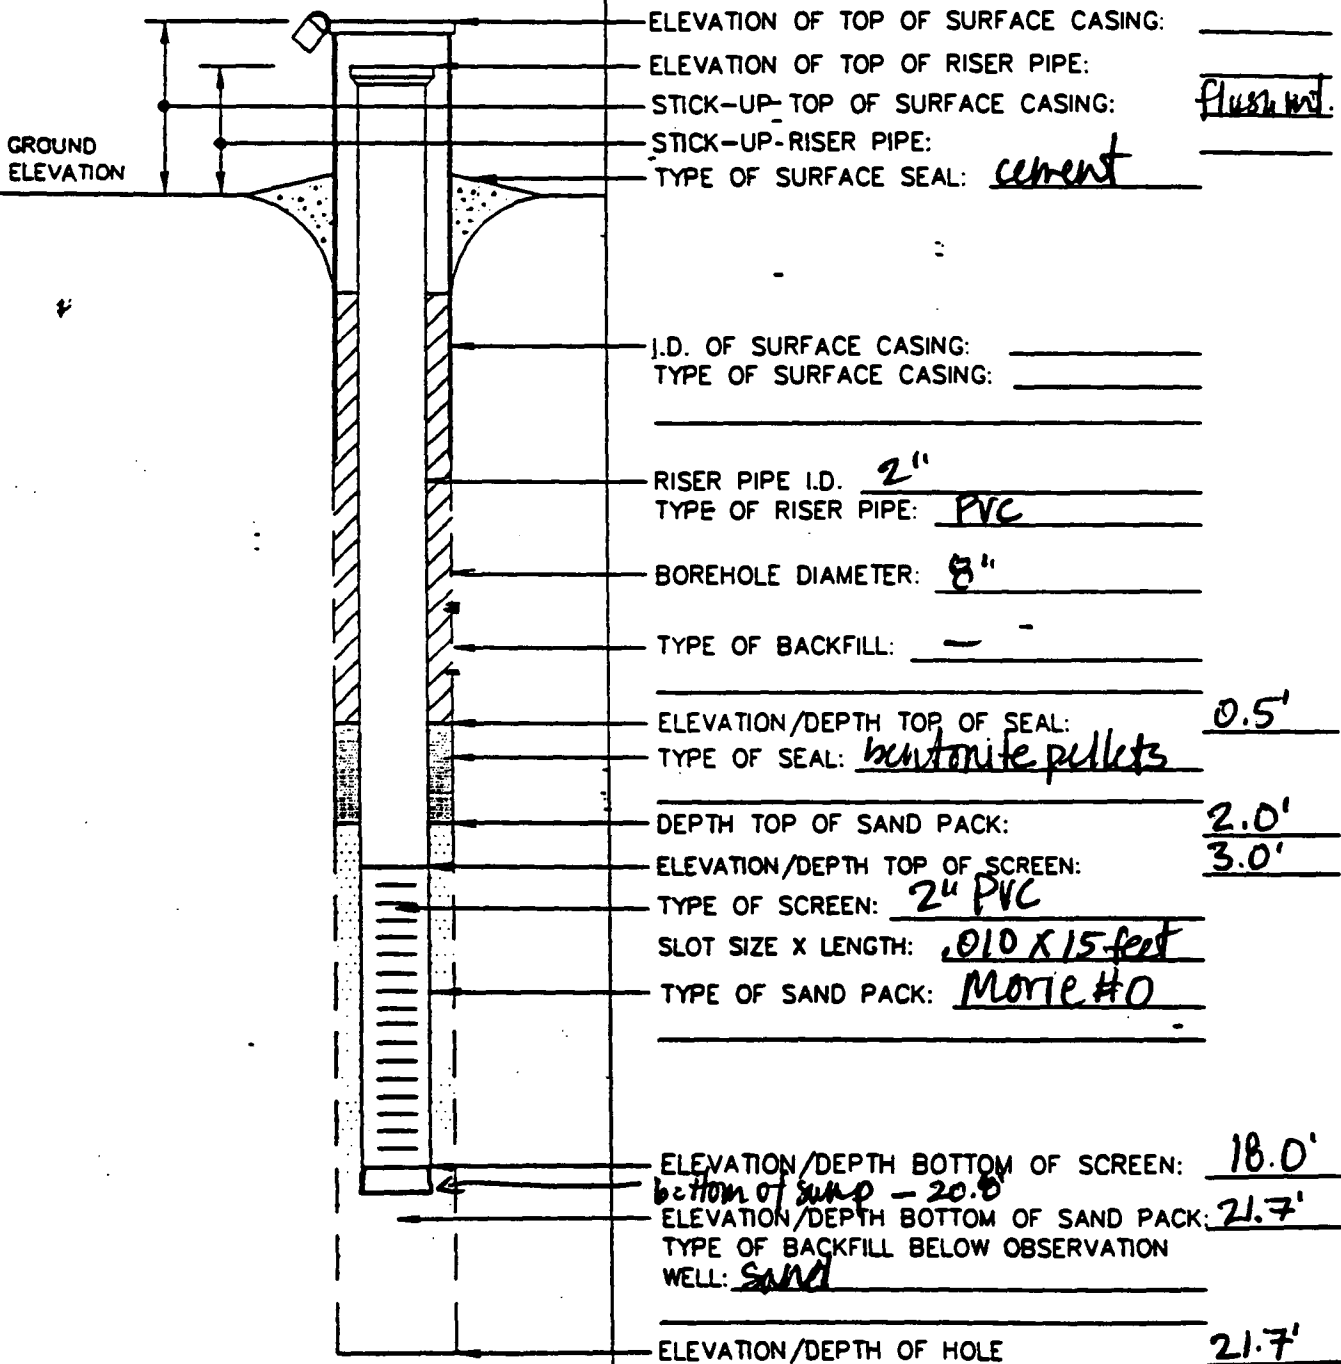 ELEVATION OF TOP OF SURFACE CASING:
ELEVATION OF TOP OF RISER PIPE:
STICK-UP-TOP OF SURFACE CASING: flush mt.
STICK-UP-RISER PIPE:
GROUND
ELEVATION
TYPE OF SURFACE SEAL: cement
I.D. OF SURFACE CASING:
TYPE OF SURFACE CASING:
RISER PIPE I.D. 2"
TYPE OF RISER PIPE: PVC
BOREHOLE DIAMETER: 8"
TYPE OF BACKFILL: —
ELEVATION/DEPTH TOP OF SEAL: 0.5'
TYPE OF SEAL: bentonite pellets
DEPTH TOP OF SAND PACK: 2.0'
ELEVATION/DEPTH TOP OF SCREEN: 3.0'
TYPE OF SCREEN: 2" PVC
SLOT SIZE X LENGTH: .010 X 15 feet
TYPE OF SAND PACK: Morie #0
ELEVATION/DEPTH BOTTOM OF SCREEN: 18.0'
bottom of sump - 20.0'
ELEVATION/DEPTH BOTTOM OF SAND PACK: 21.7'
TYPE OF BACKFILL BELOW OBSERVATION
WELL: Sand
ELEVATION/DEPTH OF HOLE 21.7'